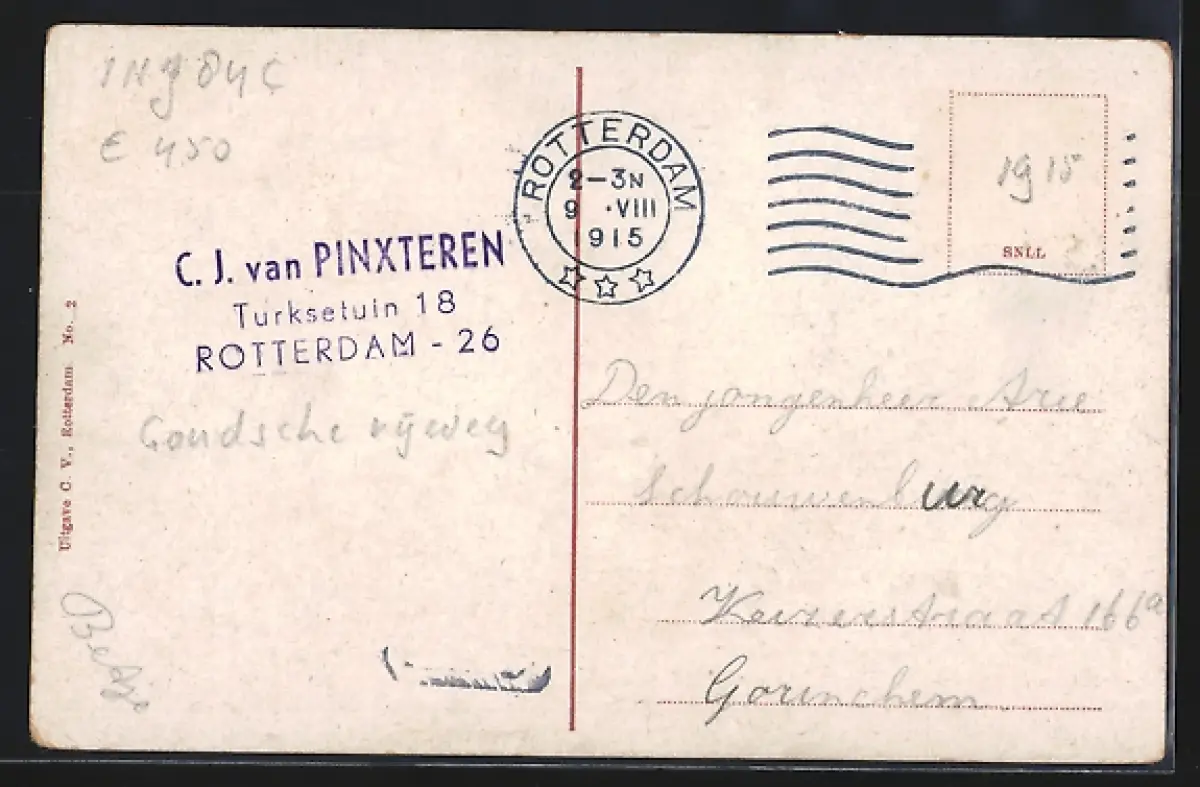 € 450
C. J. van PINXTEREN
Turksetuin 18
ROTTERDAM - 26
Goudsche rijweg
Uitgave C. V., Rotterdam. No. 2
ROTTERDAM
2–3N
9 ·VIII
1915
1915
SNLL
Den jongenheer Arie
Schouwenburg
Keizerstraat 166a
Gorinchem